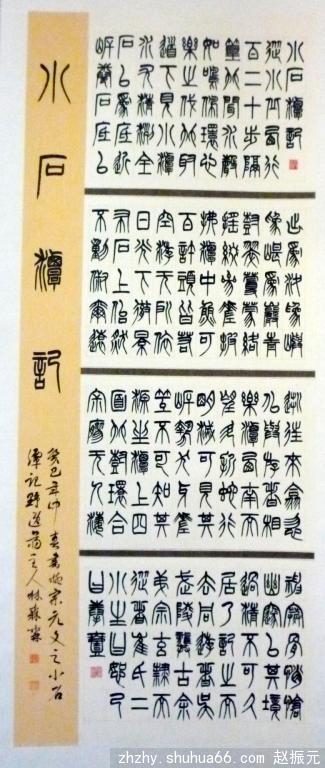 小石潭記
從小丘西行
百二十步隔
篁竹聞水聲
如鳴佩環心
樂之伐竹取
道下見小潭
水尤清冽全
石以為底近
岸卷石底以
出為坻為嶼
為嵁為巖青
樹翠蔓蒙絡
搖綴參差披
拂潭中魚可
百許頭皆若
空游無所依
日光下澈影
布石上佁然
不動俶爾遠
逝往來翕忽
似與游者相
樂潭西南而
望斗折蛇行
明滅可見其
岸勢犬牙差
互不可知其
源坐潭上四
面竹樹環合
寂寥無人淒
神寒骨悄愴
幽邃以其境
過清不可久
居乃記之而
去同游者吳
武陵龔古余
弟宗玄隸而
從者崔氏二
小生曰恕己
曰奉壹
小石潭記
癸巳年仲春書柳宗元文之小石
潭記 主人林
zhzhy.shuhua66.com 赵振元